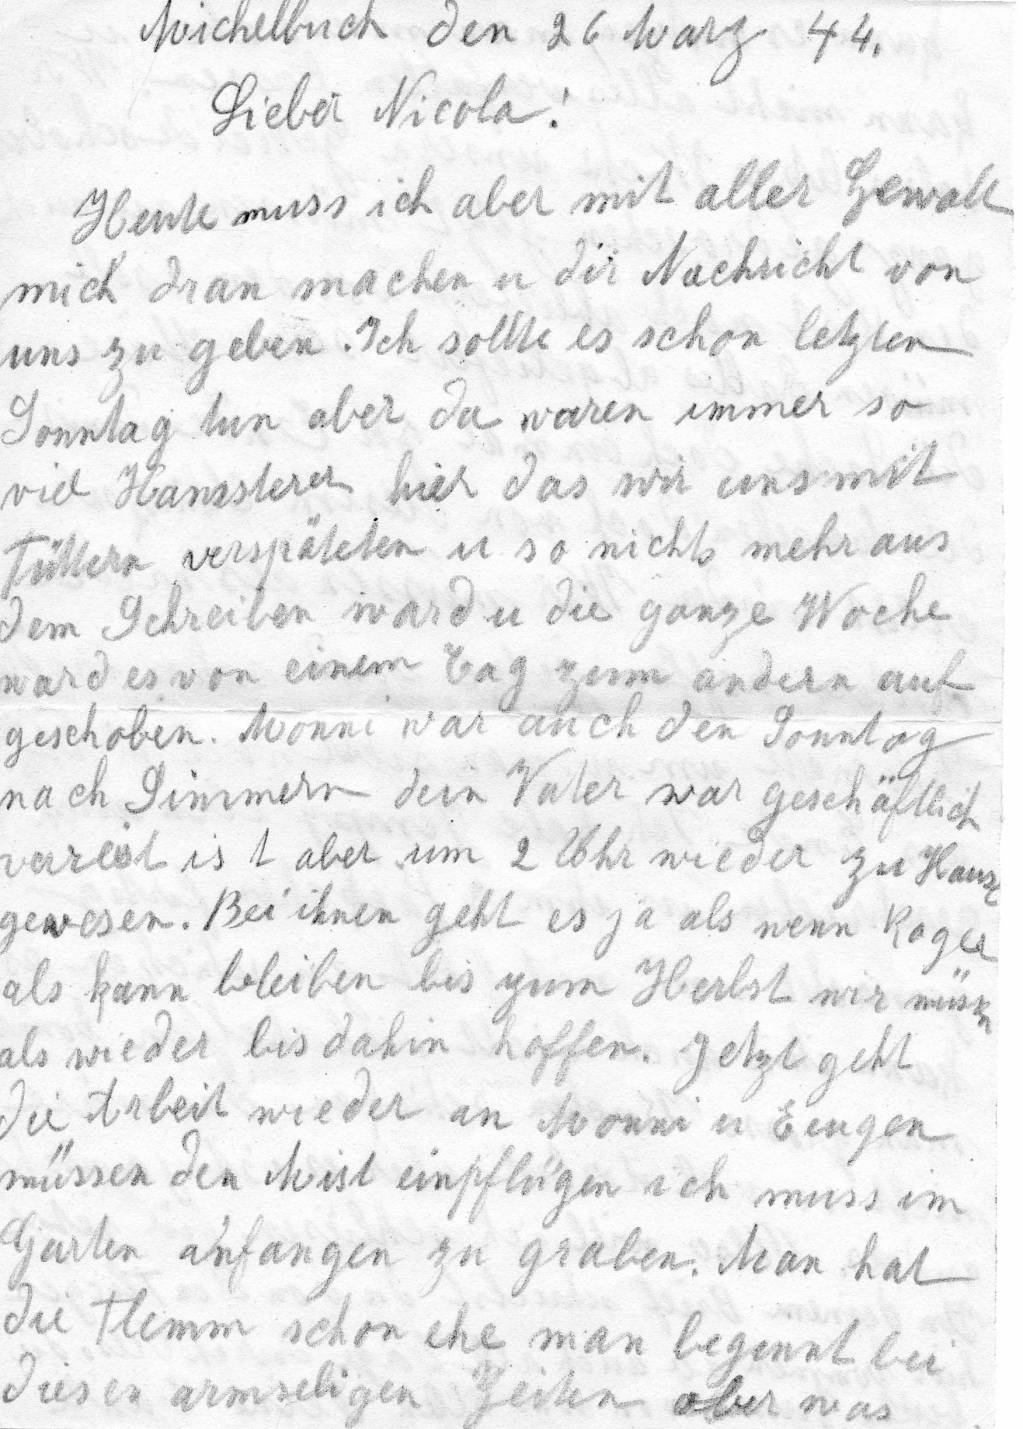 Michelbuch den 26 März 44.
Lieber Nicola!
Heute muss ich aber mit aller Gewalt
mich dran machen u dir Nachricht von
uns zu geben. Ich sollte es schon letzten
Sonntag tun aber da waren immer so
viel Hamsterer hier das wir uns mit
Füttern verspäteten u so nichts mehr aus
dem Schreiben ward u die ganze Woche
ward es von einem Tag zum andern auf
geschoben. Monni war auch den Sonntag
nach Simmern dein Vater war geschäftlich
vereist ist aber um 2 Uhr wieder zu Hause
gewesen. Bei ihnen geht es ja als wenn
als kann bleiben bis zum Herbst wir müssen
als wieder bis dahin hoffen. Jetzt geht
die Arbeit wieder an Monni u Eugen
müssen den Mist einpflügen ich muss im
Garten anfangen zu graben. Man hat
die Flemm schon ehe man beginnt bei
diesen armseligen Zeiten aber was